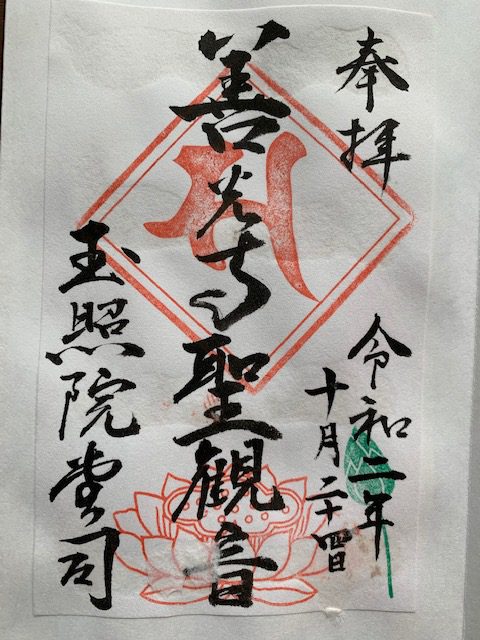 奉拝
令和二年
十月二十四日
善光寺聖観音
玉照院堂司